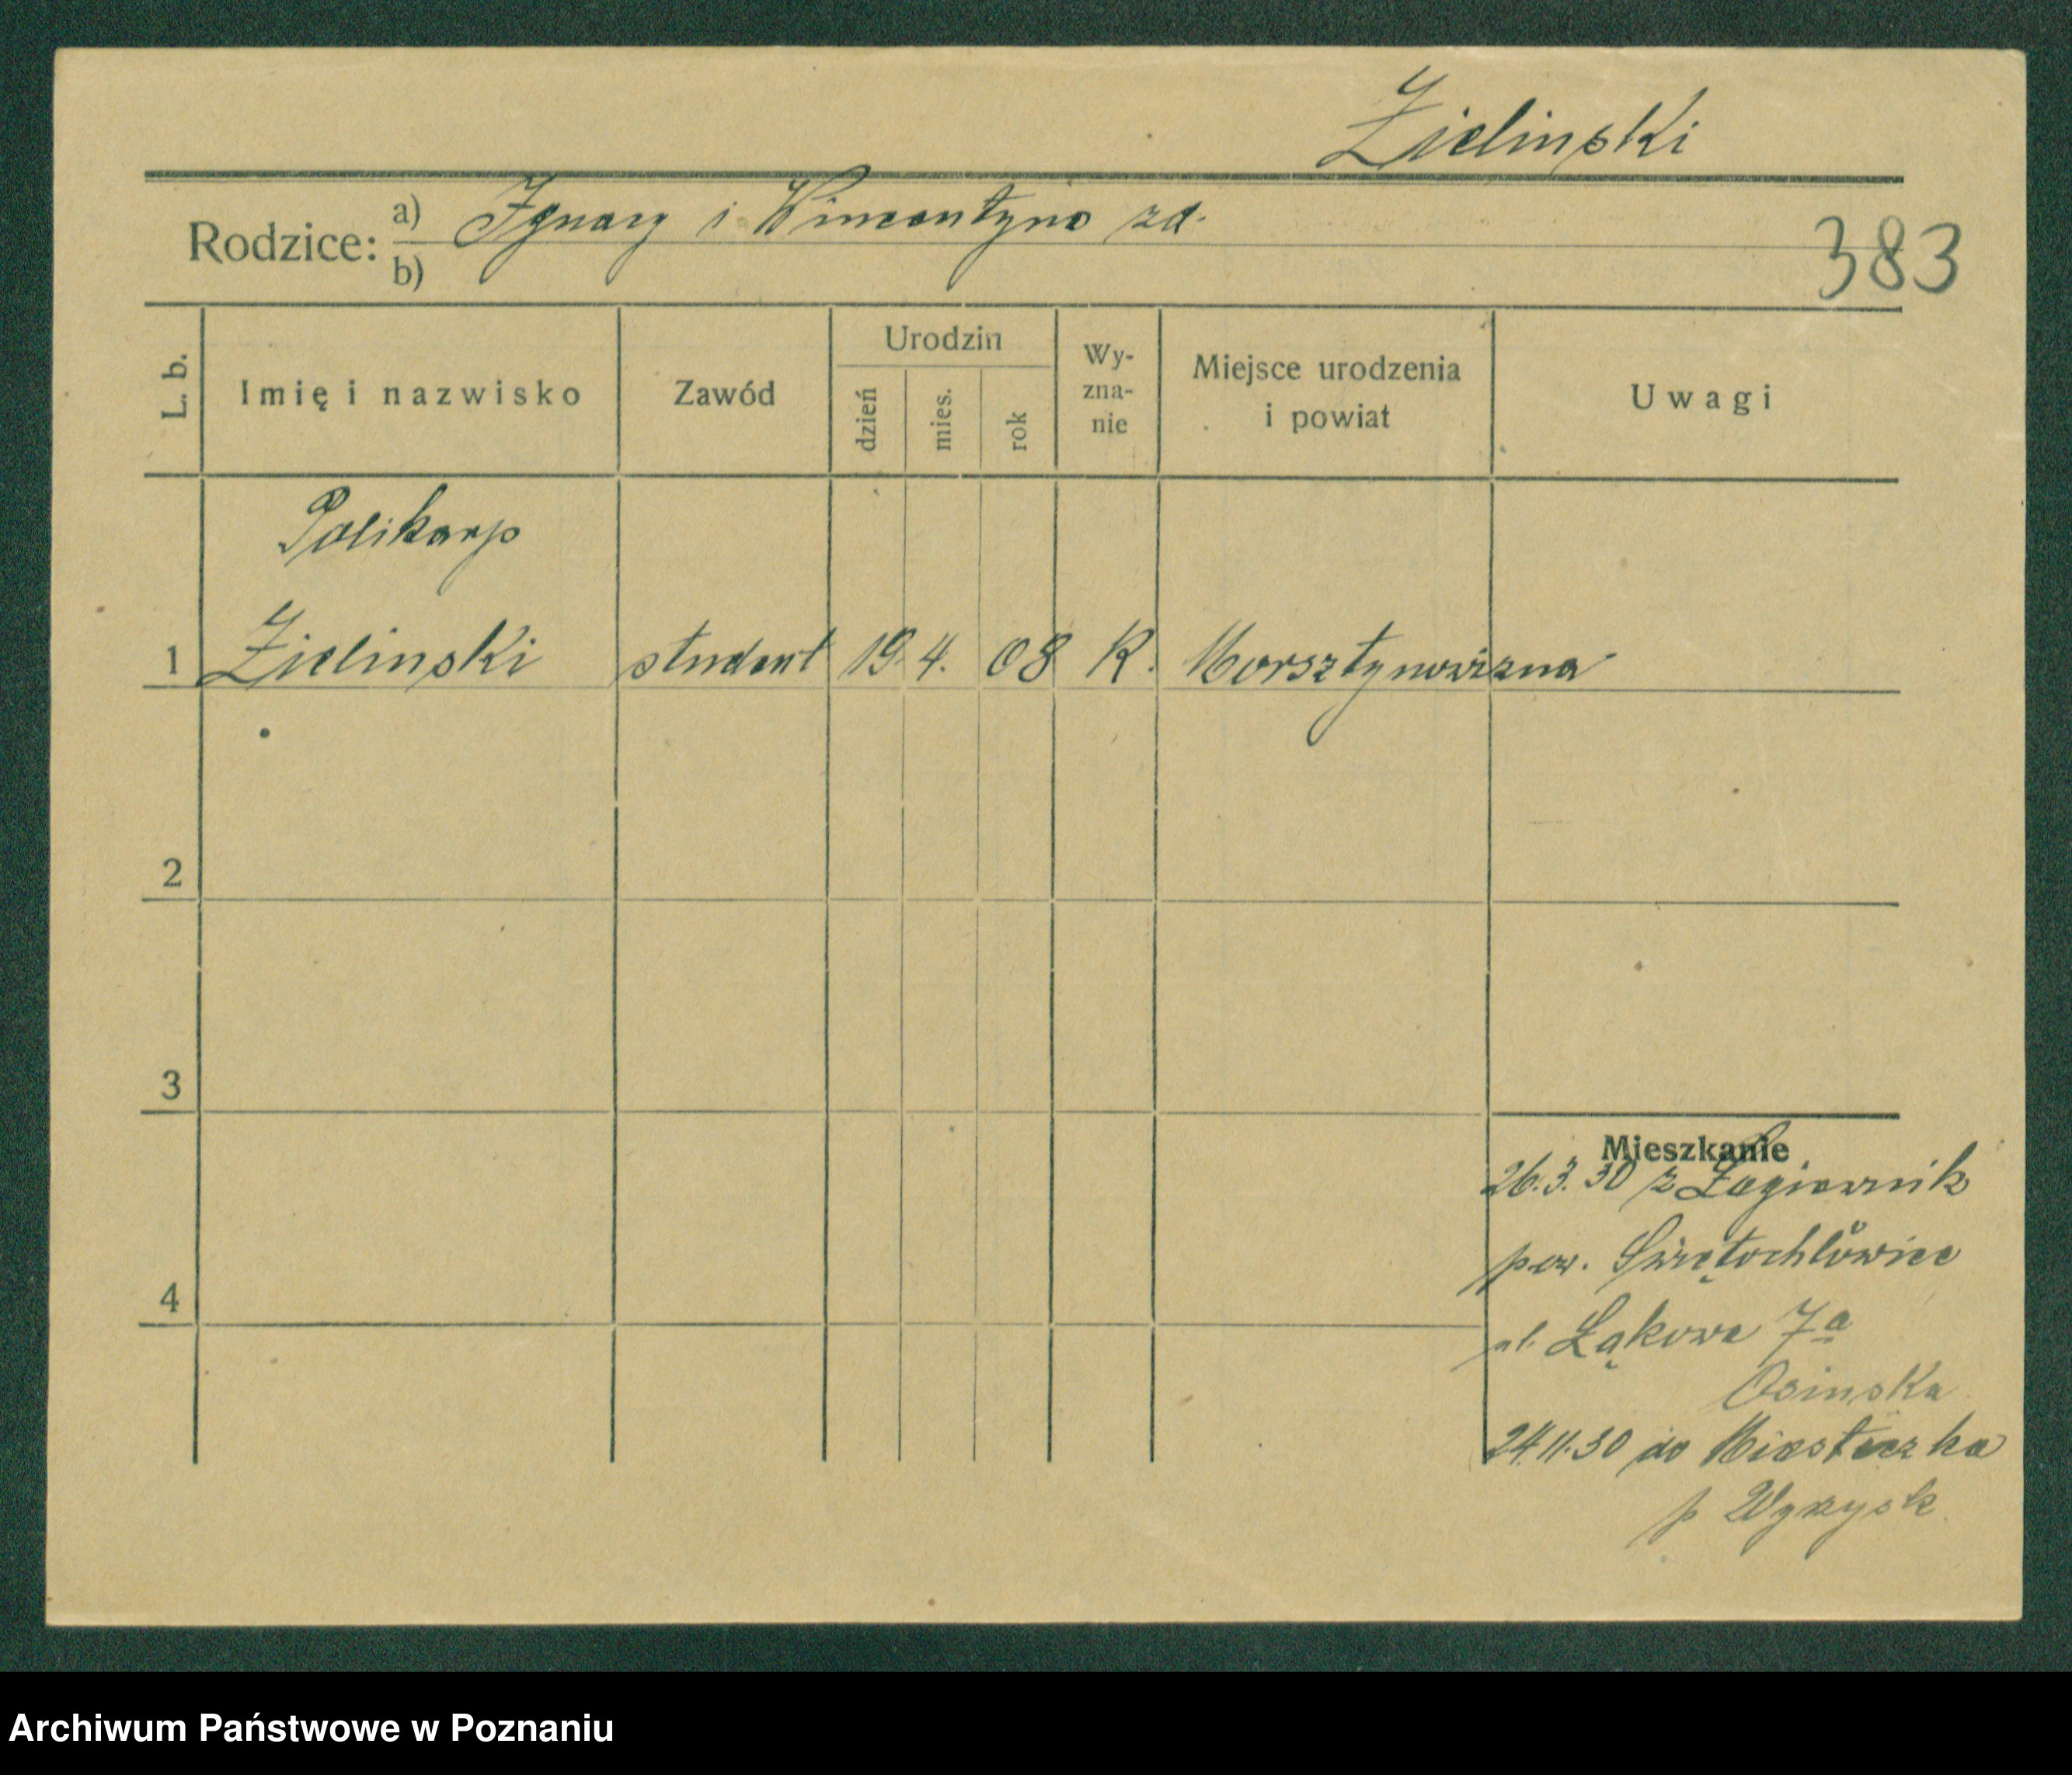 Zielinski
Rodzice: a) Ignacy i Wincentyna zd.
b)
383
L. b.
Imię i nazwisko
Zawód
Urodzin
dzień
mies.
rok
Wy-
zna-
nie
Miejsce urodzenia
i powiat
Uwagi
Polikarp
1 Zielinski student 19. 4. 08 K. Morsztynowizna
2
3
4
Mieszkanie
26.3.30 z Łagiewnik
pow. Świętochłowice
ul. Łąkowa 7a
Osinska
24.11.30 do Miasteczka
p Wyrzysk
Archiwum Państwowe w Poznaniu